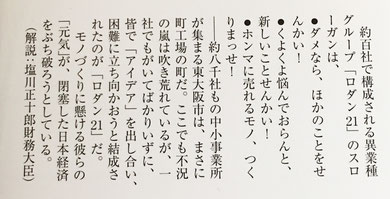 約百社で構成される異業種
グループ「ロダン21」のスロ
ーガンは、
●ダメなら、ほかのことをせ
んかい!
●くよくよ悩んでおらんと、
新しいことせんかい!
●ホンマに売れるモノ、つく
りまっせ!
――約八千社もの中小事業所
が集まる東大阪市は、まさに
町工場の町だ。ここでも不況
の嵐は吹き荒れているが、一
社でもがいてばかりいずに、
皆で「アイデア」を出し合い、
困難に立ち向かおうと結成さ
れたのが「ロダン21」だ。
モノづくりに懸ける彼らの
「元気」が、閉塞した日本経済
をぶち破ろうとしている。
(解説:塩川正十郎財務大臣)